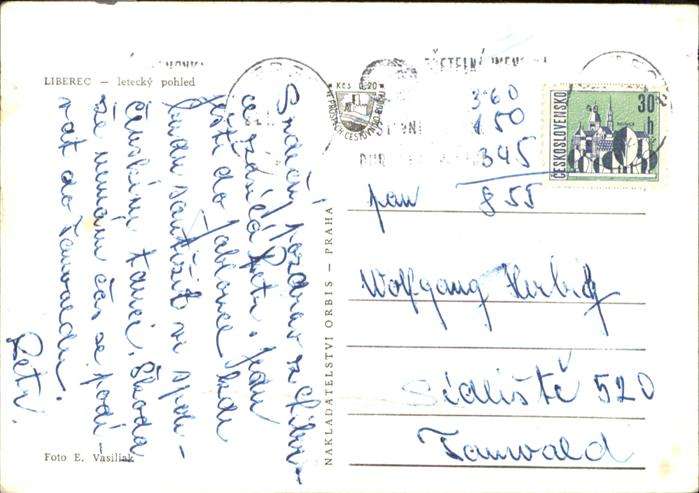 LIBEREC — letecký pohled
Srdečný pozdrav z Libe-
rce zasílá Petr. Jedu
ještě do Jablonce kde
budu soutěžit ve spole-
čenském tanci. Škoda
že nemám čas se podí-
vat do Tanvaldu.
Petr.
Foto E. Vasiliak
NAKLADATELSTVÍ ORBIS — PRAHA
Kčs 0,20
ČESKOSLOVENSKO
30 h
3·60
1·50
345
855
pan
Wolfgang Herbig
Sídliště 520
Tanvald